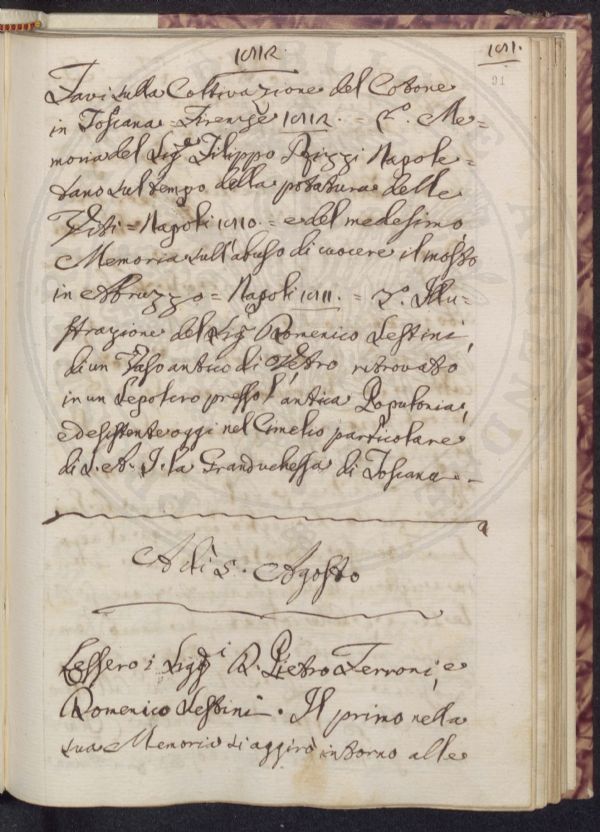 1812.
181.
91
Tavi sulla Coltivazione del Cotone
in Toscana = Firenze 1812. = 2.° Me=
moria del Sig.re Filippo Rizzi Napole=
tano sul tempo della potatura delle
Viti = Napoli 1810. = e del medesimo,
Memoria sull'abuso di cuocere il mosto
in Abruzzo = Napoli 1811. = 3.° Illu=
strazione del Sig.r Domenico Sestini,
di un Vaso antico di Vetro ritrovato
in un Sepolcro presso l'antica Populonia,
ed esistente oggi nel Cimelio particolare
di S. A. I. la Granduchessa di Toscana. -
Adì 5. Agosto
Lessero i Sigg.ri D. Pietro Ferroni, e
Domenico Sestini. Il primo nella
sua Memoria si aggirò intorno alle